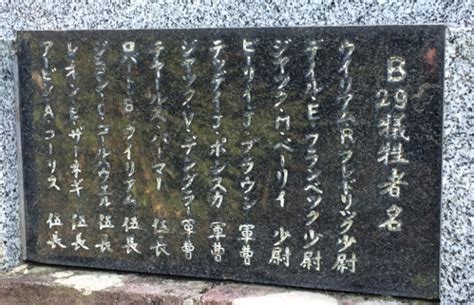 B29犠牲者名
ウイリアム・R・フレドリック少尉
テイル・E・フランベック少尉
ジャック・M・ベーリイ 少尉
ビーリイ・J・ブラウン 軍曹
テディ・J・ポンスカ 軍曹
ジャック・V・デングラー 軍曹
チャールス・パーマー 伍長
ロバート・S・ウイリアム 伍長
ジョン・C・コールウェル 伍長
レオン・E・ザーネキ 伍長
アービン・A・コーリス 伍長